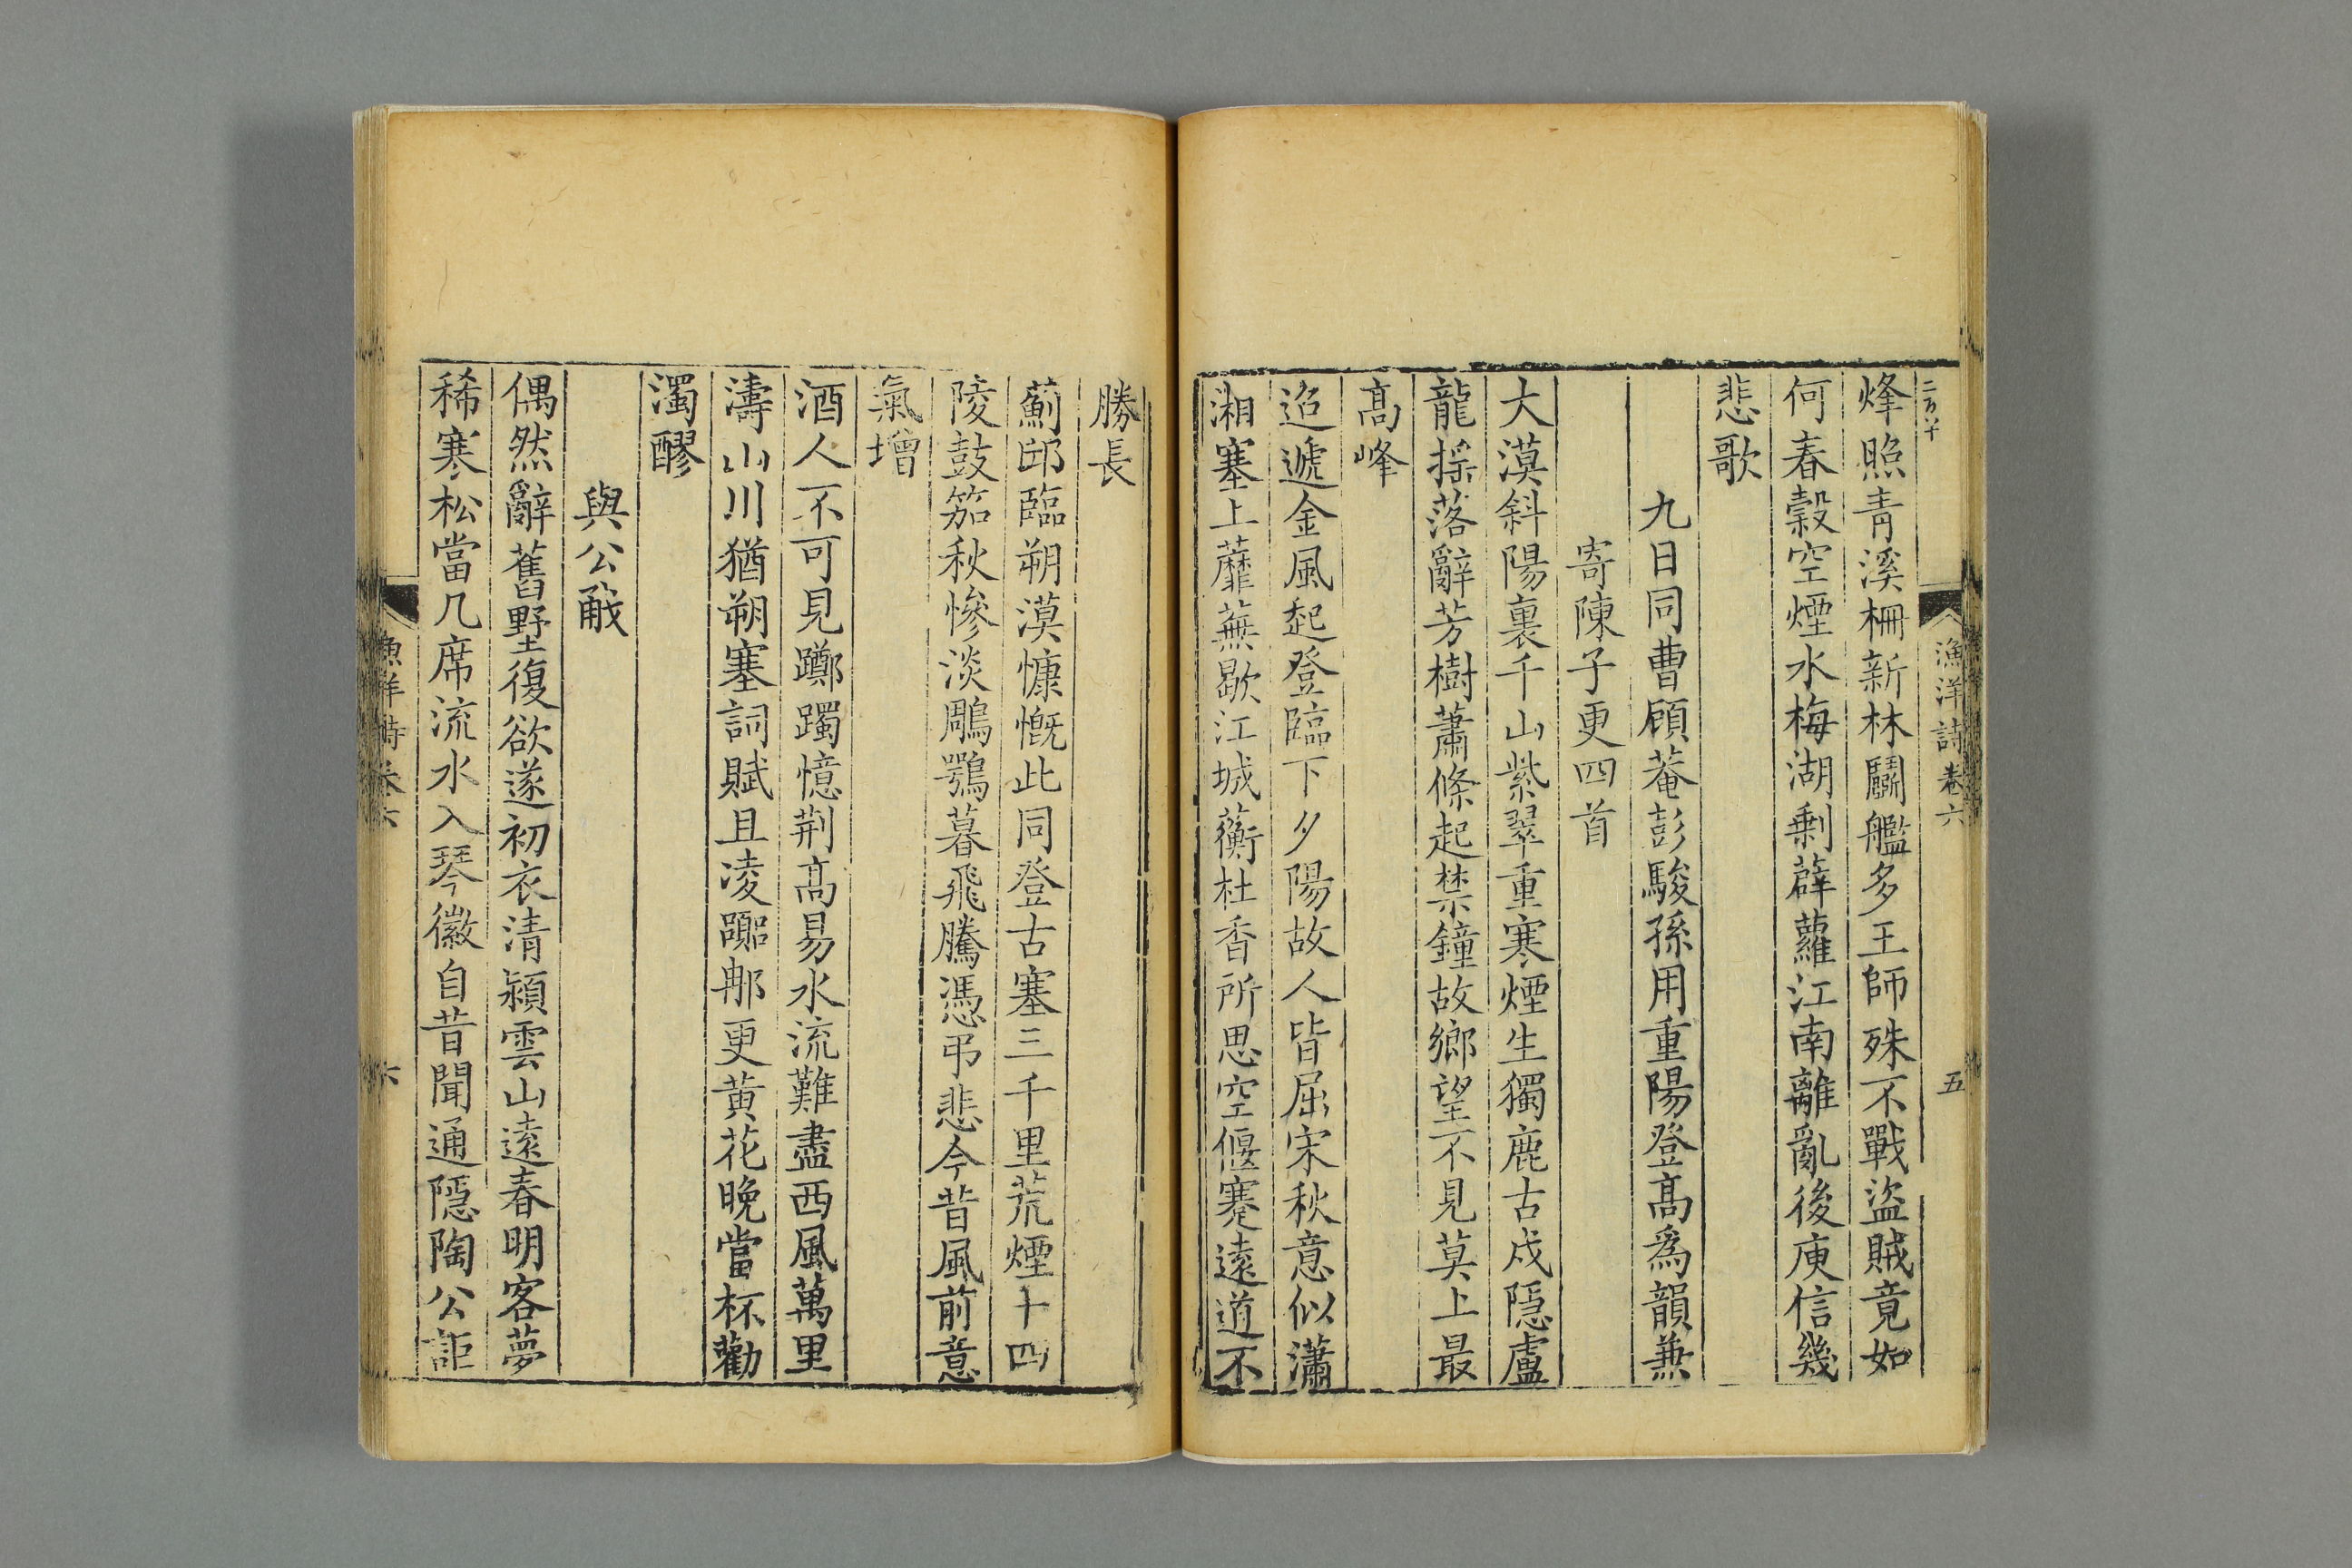 漁洋詩卷六
五
烽照青溪柵新林鬭艦多王師殊不戰盜賊竟如
何春穀空煙水梅湖剩薜蘿江南離亂後庾信幾
悲歌
九日同曹顧菴彭駿孫用重陽登高爲韻兼
寄陳子更四首
大漠斜陽裏千山紫翠重寒煙生獨鹿古戍隱盧
龍揺落辭芳樹蕭條起禁鐘故鄉望不見莫上最
高峰
迢遞金風起登臨下夕陽故人皆屈宋秋意似瀟
湘塞上蘼蕪歇江城蘅杜香所思空偃蹇遠道不
勝長
薊邱臨朔漠慷慨此同登古塞三千里荒煙十四
陵鼓笳秋慘淡鵰鶚暮飛騰憑弔悲今昔風前意
氣增
酒人不可見躑躅憶荆高易水流難盡西風萬里
濤山川猶朔塞詞賦且凌躐郍更黃花晚當杯勸
濁醪
與公㦸
偶然辭舊墅復欲遂初衣清潁雲山遠春明客夢
稀寒松當几席流水入琴徽自昔聞通隱陶公詎
漁洋詩卷六
六